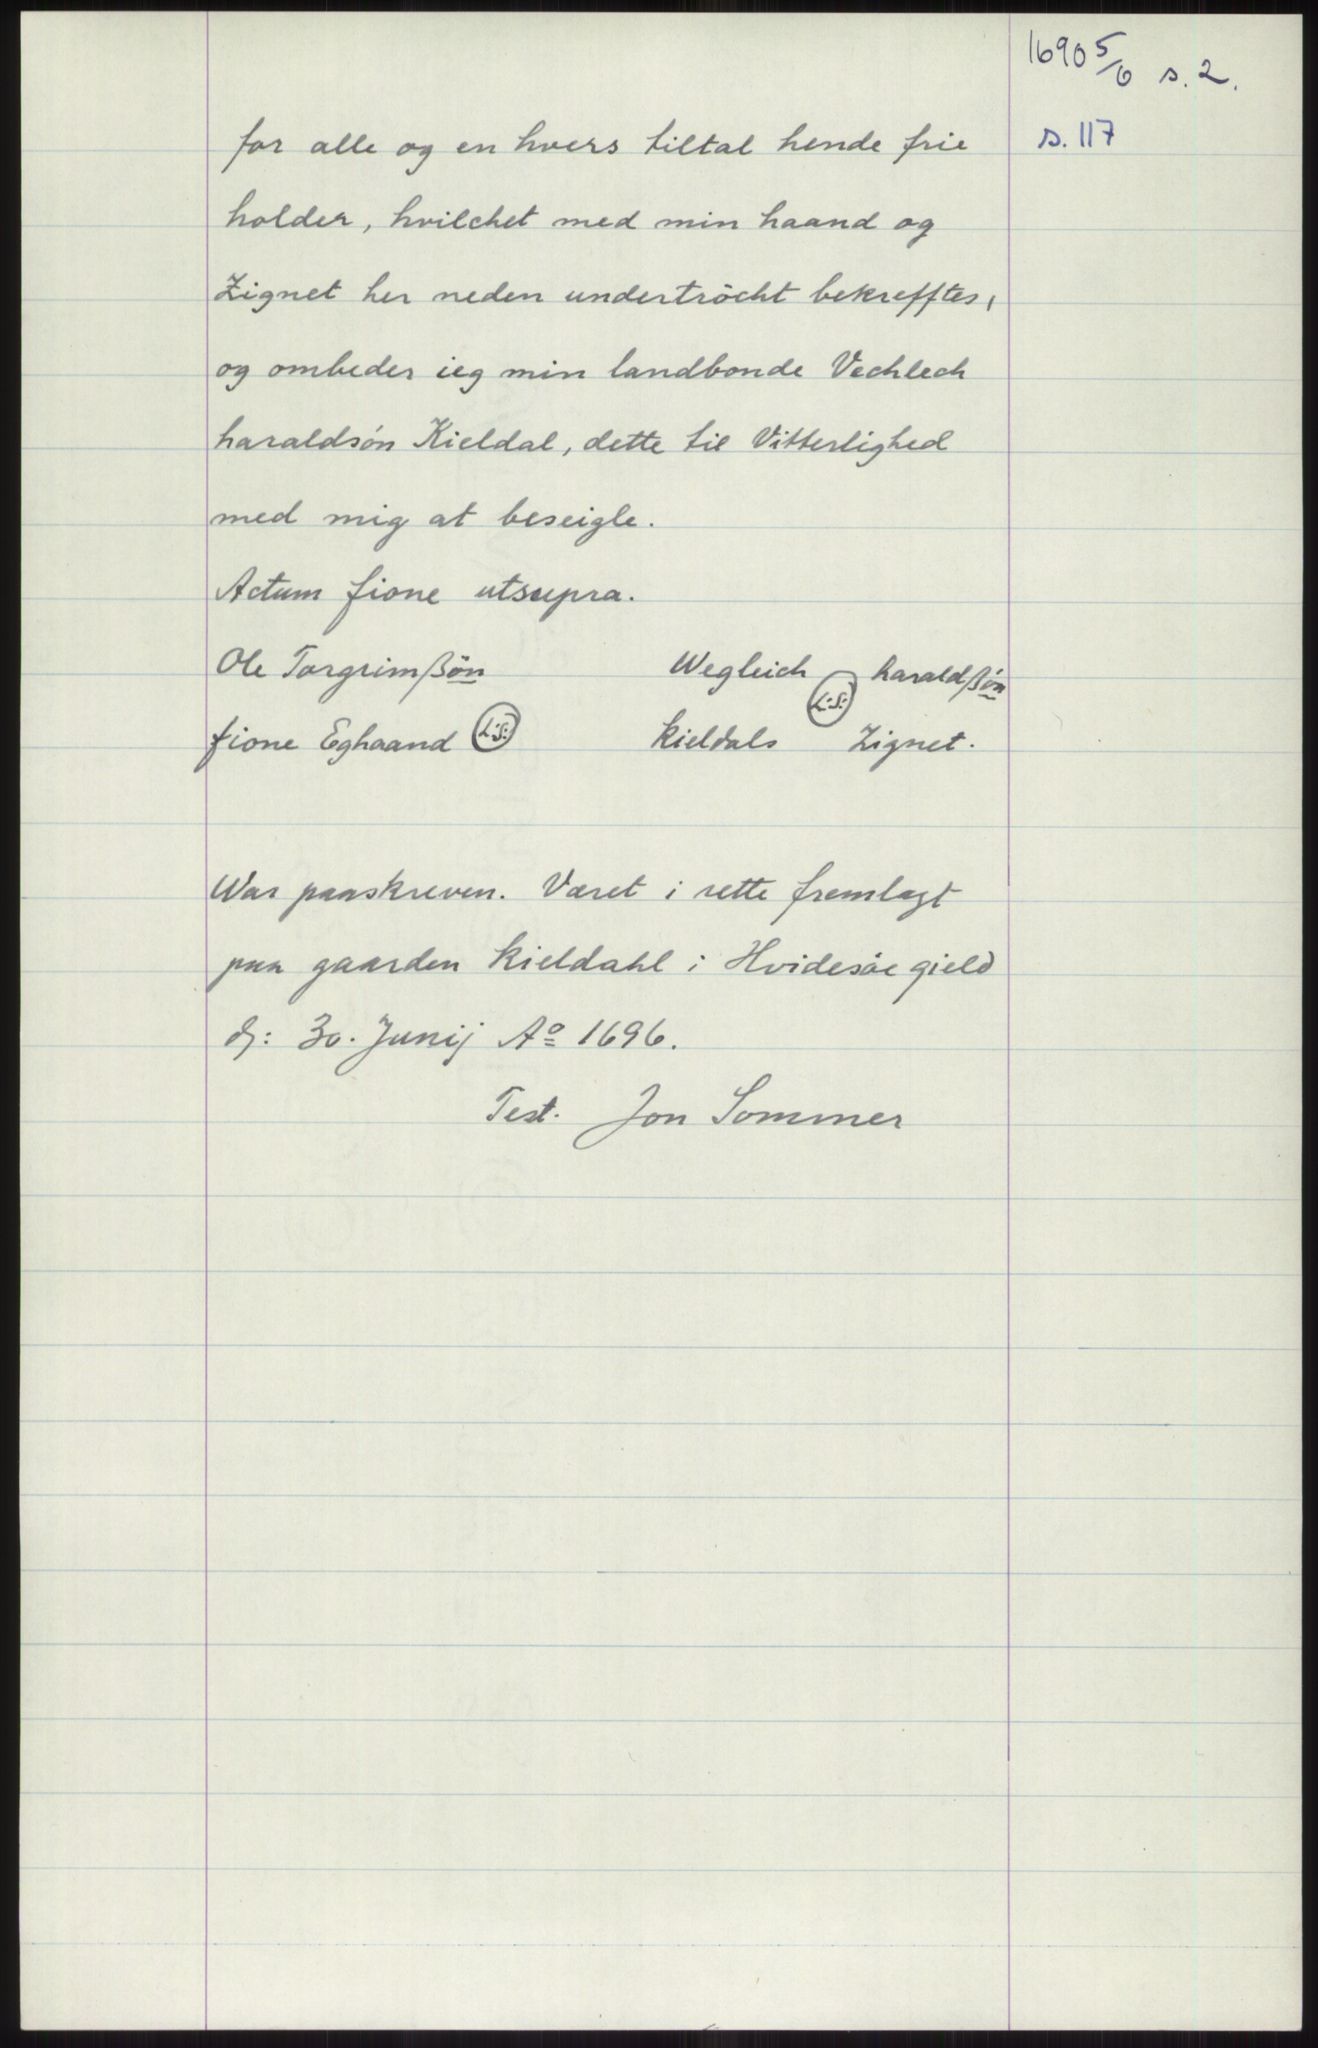 1690 5/6 s. 2.
s. 117
for alle og en hvers tiltal hende frie
holder, hvilchet med min haand og
Zignet her neden undertröcht bekrefftes,
og ombeder ieg min landbonde Vechlech
haraldsón Kieldal, dette til Vitterlighed
med mig at beseigle.
Actum fione utsupra.
Ole Torgrimßön Wegleich L:S: haraldßön
fione Eghaand L:S: kieldals Zignet.
War paaskreven. Været i rette fremlagt
paa gaarden kieldahl i Hvidesöe gield
dj: 30. Junij Ao 1696.
Test. Jon Sommer